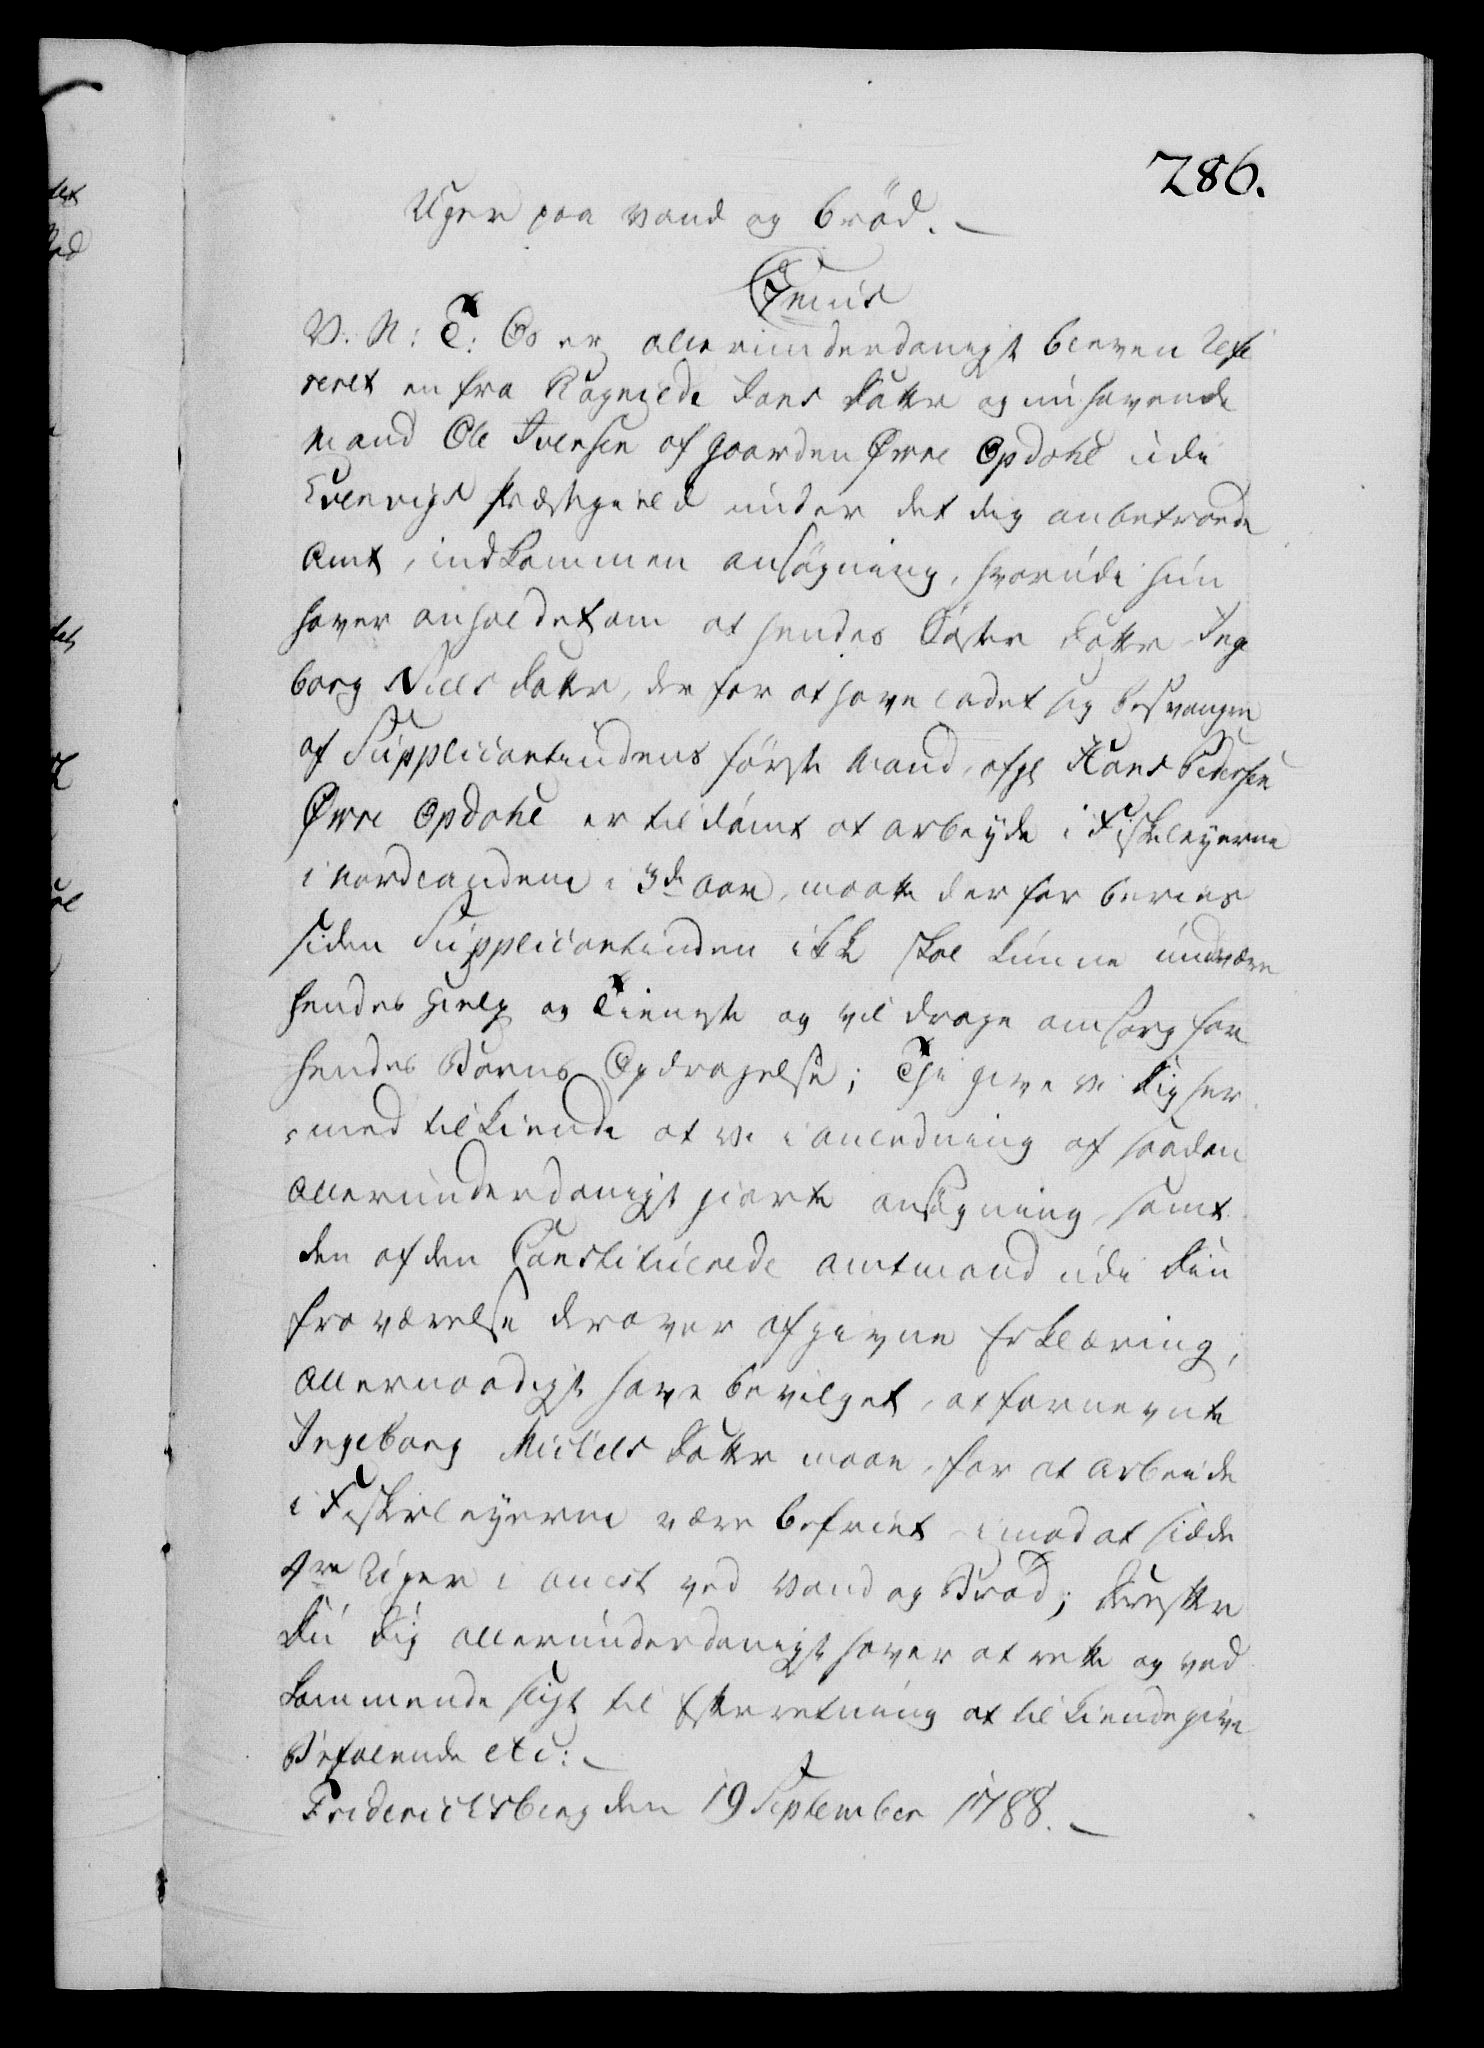 286.
Uger paa vand og brød.
V. N: T: Os er allerunderdanigst bleven Refe
reret en fra Ragnilde Hans datter og nu havende
Mand Ole Iversen af gaarden Øvre Opdahl udi
Præstegield under det dig anbetroede
Amt, indkommen ansøgning, hvorudi hun
haver anholdet om at hendes Søster datter Inge
borg Niels datter, der for at have ladet sig besvangre
af Supplicantindens første Mand, afg: Hans Pedersen
Øvre Opdahl er til dømt at arbeyde i Fiskeleyerne
i Nordlandene i 3de Aar, maatte derfor befries
siden Supplicantinden ikke skal kunne undvære
hendes Hielp og Tieneste og vil drage omsorg for
hendes Barns Opdragelse; Thi give vi dig her
med tilkiende at vi i anledning af saadan
allerunderdanigst giorte ansøgning, samt
den af den Constituerede amtmand udi din
fraværelse derover afgivne Erklæring,
allernaadigst have bevilget, at fornevnte
Ingeborg Nickels datter maae, for at arbeide
i Fiskerleyerne være befriet imod at sidde
Uger i arest ved Vand og Brød; derefter
du dig allerunderdanigst haver at rette og ved
kommende sligt til Efterretning at tilkiendegive
Befalende etc:
Friderichsberg den 19 September 1788.